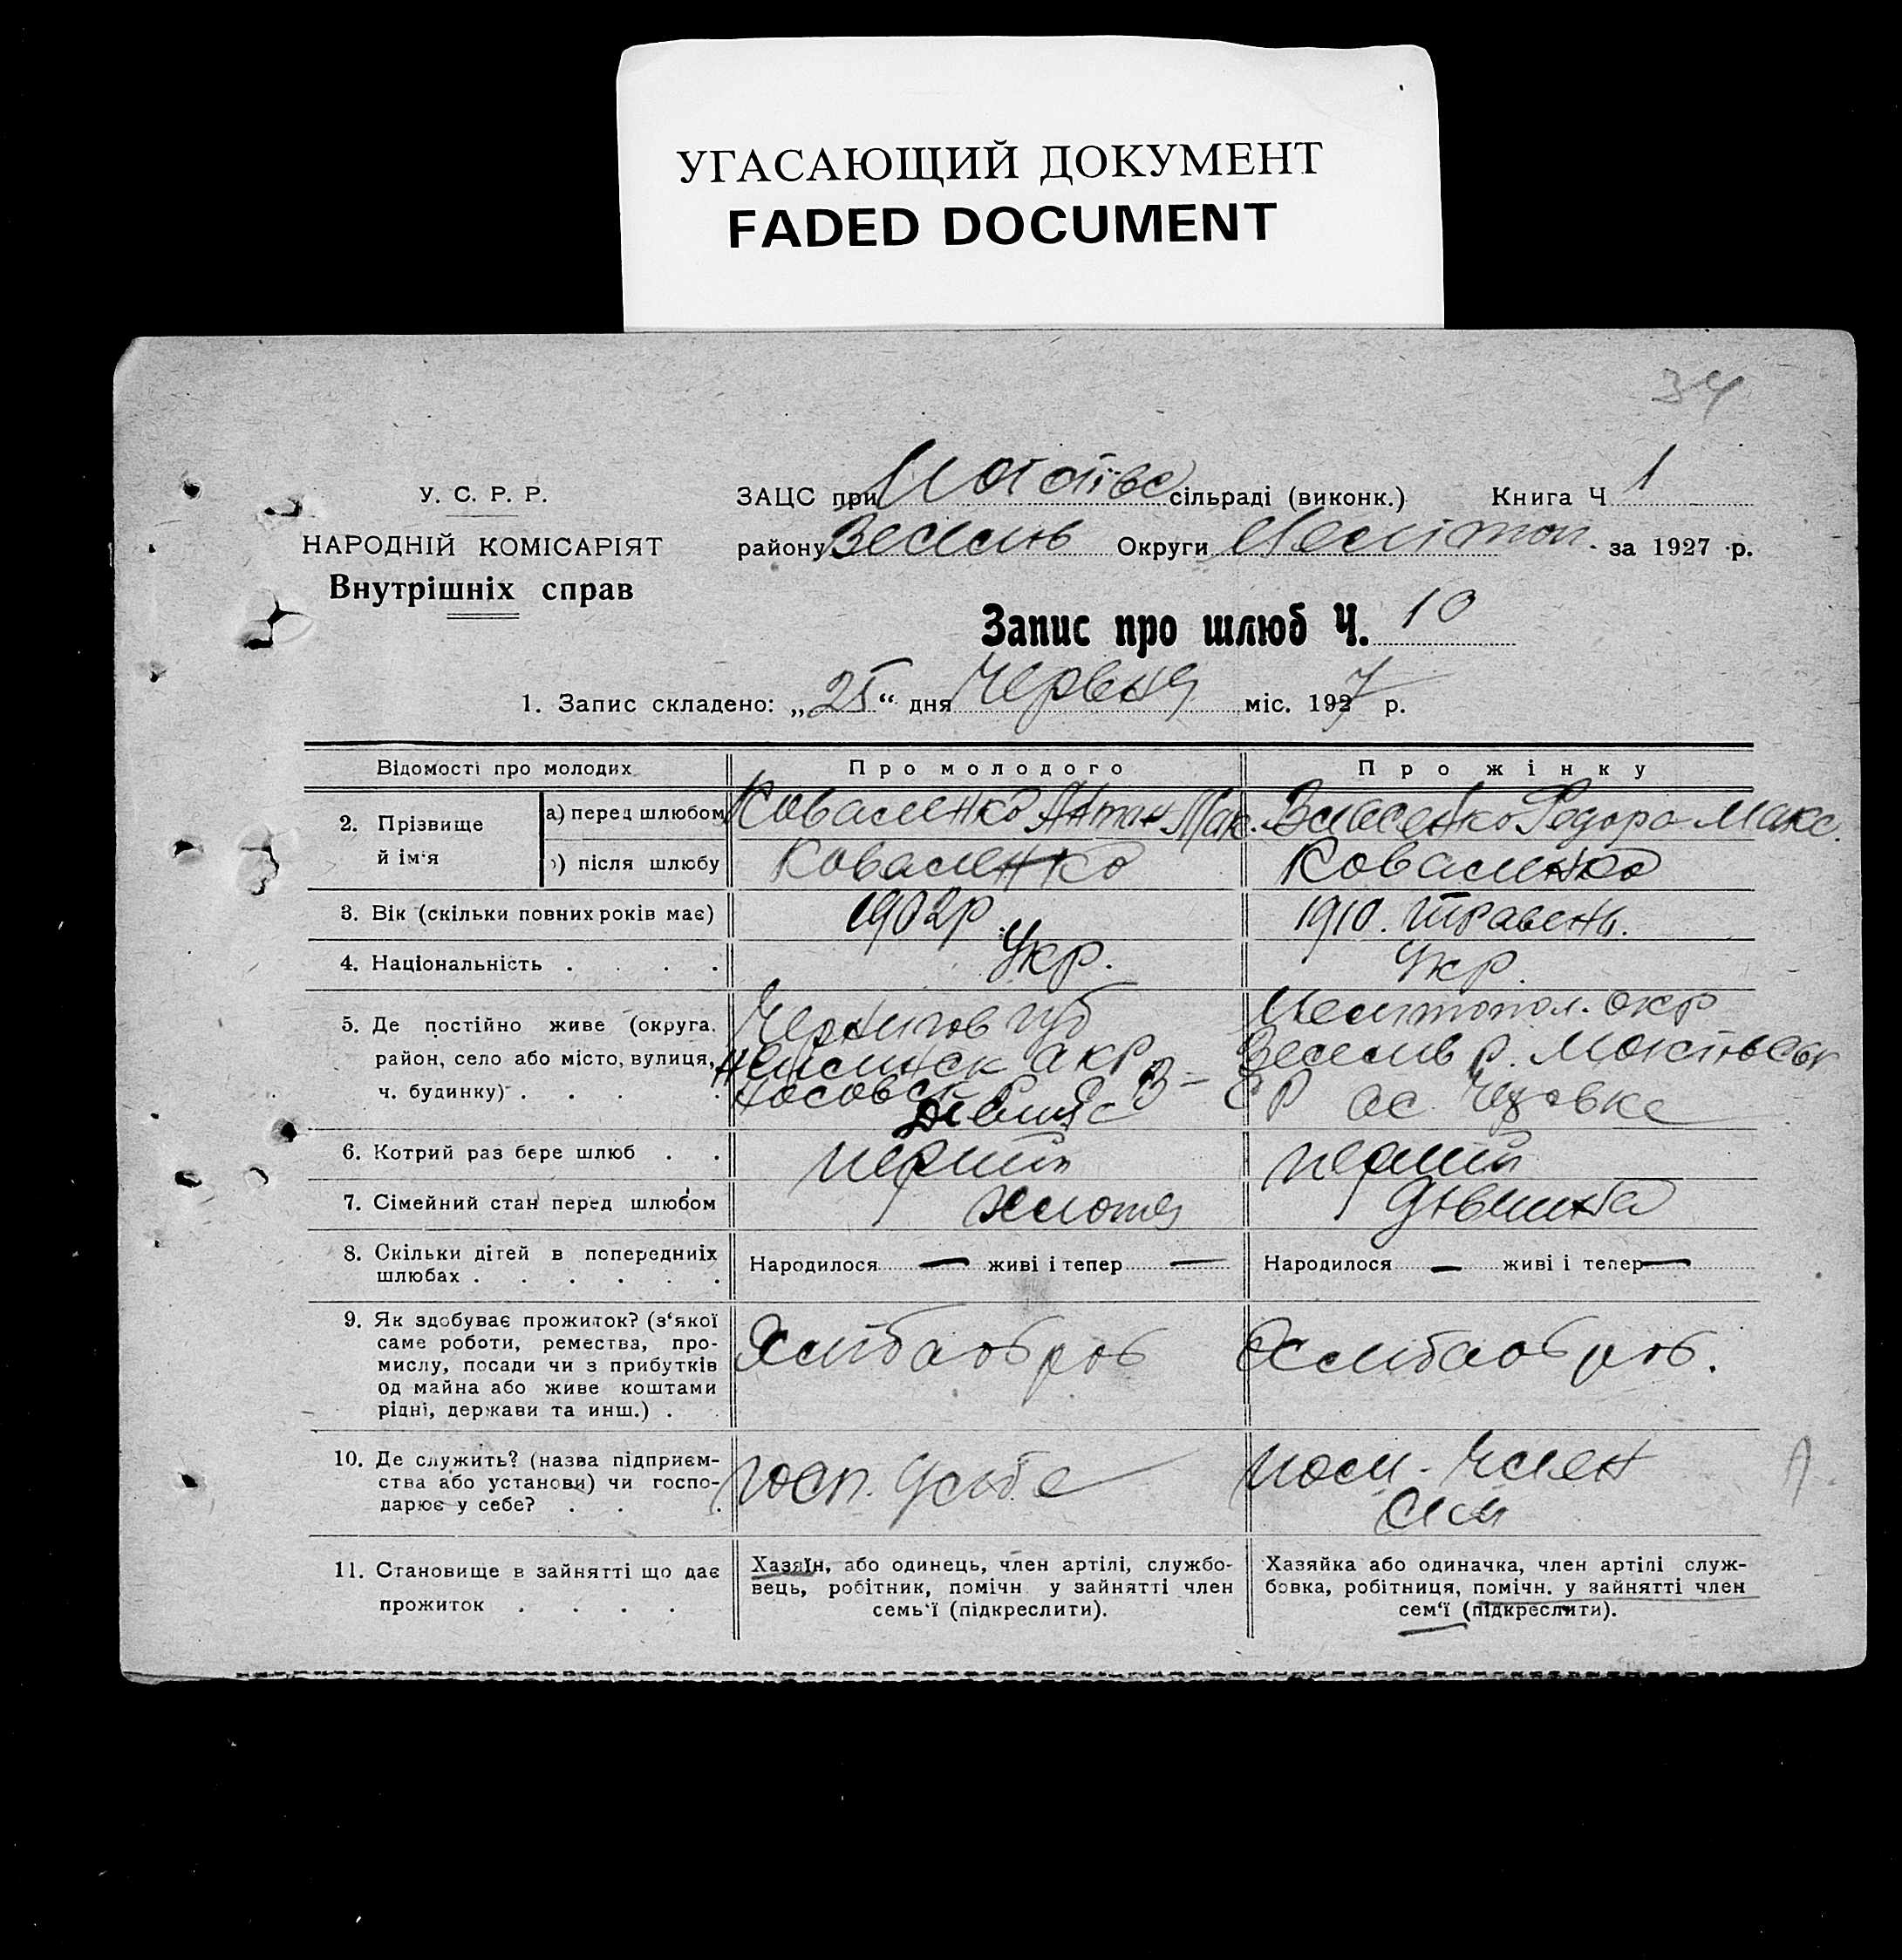 УГАСАЮЩИЙ ДОКУМЕНТ
FADED DOCUMENT
34
У. С. Р. Р.
НАРОДНІЙ КОМІСАРІЯТ
Внутрішніх справ
ЗАЦС при сільраді (виконк.) Книга Ч 1
району Веселів Округи Мелітоп. за 1927 р.
Запис про шлюб Ч. 10
1. Запис складено: „25“ дня Червня міс. 1927 р.
Відомості про молодих Про молодого Про жінку
2. Прізвище й ім‘я
а) перед шлюбом Коваленко Антон Мак. Власенко Федора Макс.
б) після шлюбу Коваленко Коваленко
3. Вік (скільки повних років має) 1902р. 1910. Травень.
4. Національність . . . . Укр. Укр.
5. Де постійно живе (округа, район, село або місто, вулиця, ч. будинку) . . . .
Чернигов губ
акр
Носовск
Мелитопол. окр
Веселів р.
6. Котрий раз бере шлюб . . перший перший
7. Сімейний стан перед шлюбом хлопец дівчина
8. Скільки дітей в попередниіх шлюбах . . . . . .
Народилося — живі і тепер —
Народилося — живі і тепер —
9. Як здобуває прожиток? (з‘якої
саме роботи, ремества, про-
мислу, посади чи з прибутків
од майна або живе коштами
рідні, держави та инш.) .
Хлибаоброб Хлибаоброб.
10. Де служить? (назва підприєм-
ства або установи) чи госпо-
дарює у себе? . . .
госп. у себе
член
сім
11. Становище в зайнятті що дає
прожиток . . . .
Хазяїн, або одинець, член артілі, службо-
вець, робітник, помічн у зайнятті член
семь‘ї (підкреслити).
Хазяйка або одиначка, член артілі служ-
бовка, робітниця, помічн. у зайнятті член
сем‘ї (підкреслити).